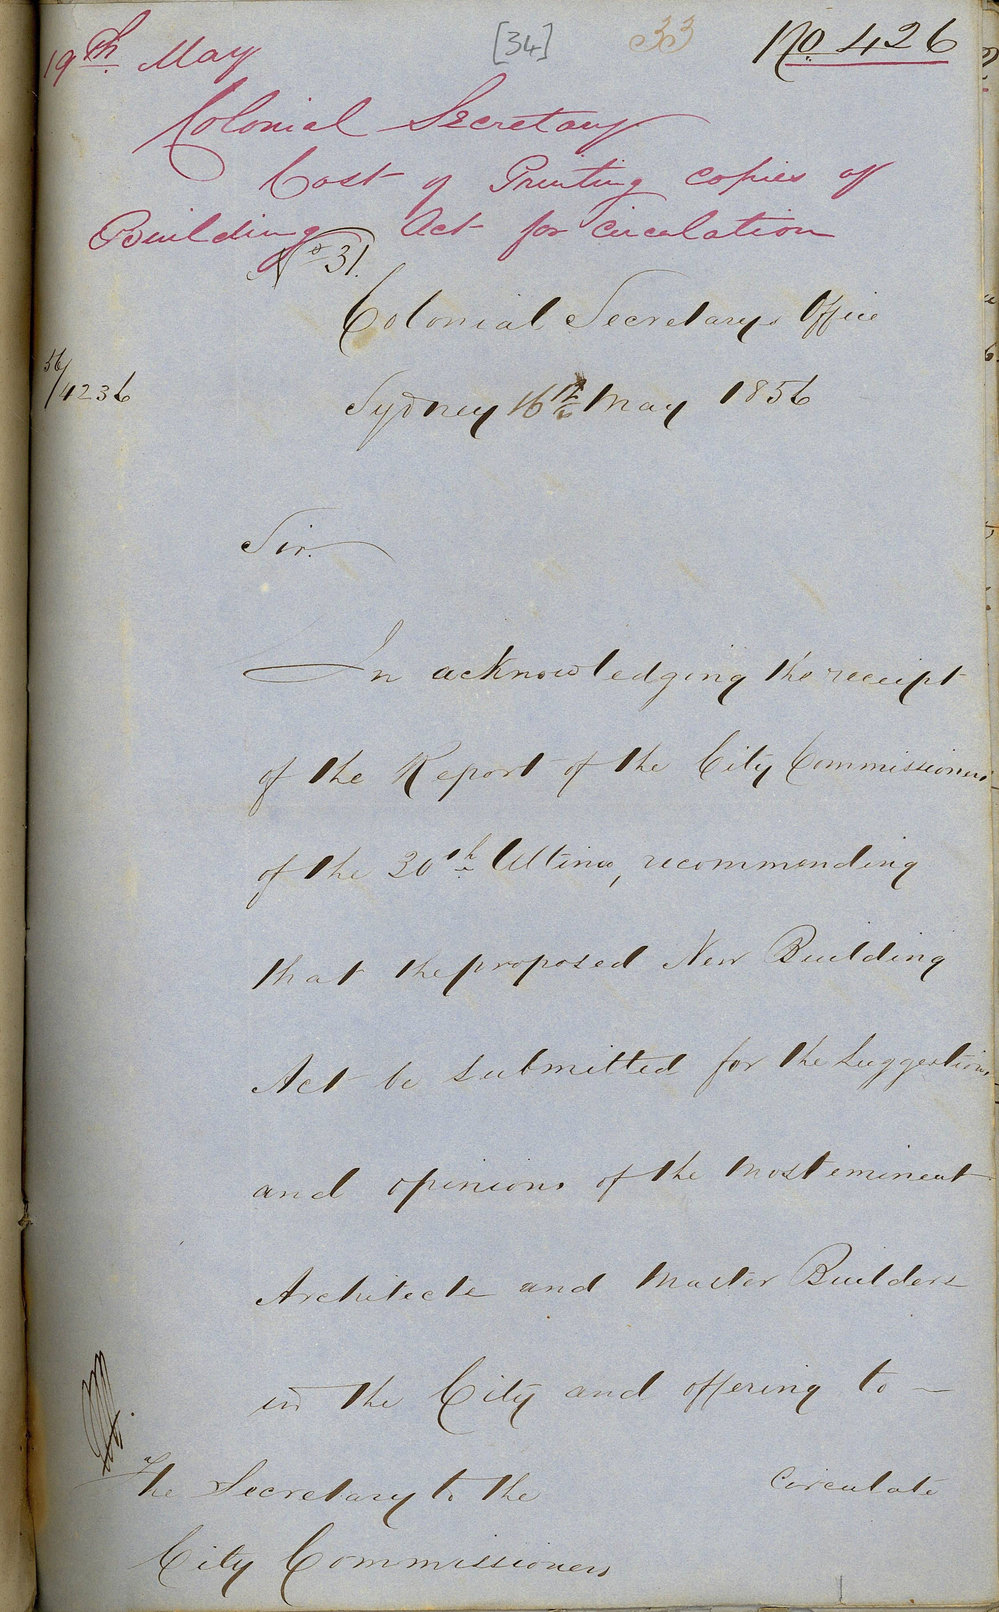 19th May
[34]
33
No. 426
Colonial Secretary
Cost of Printing copies of
Building Act for circulation
No 31.
Colonial Secretarys Office
56/4236
Sydney 16th May 1856
Sir.
In acknowledging the receipt
of the Report of the City Commissioners
of the 30th Ultimo, recommending
that the proposed New Building
Act be submitted for the Suggestions
and opinions of the most eminent
Architects and Master Builders
in the City and offering to —
circulate
The Secretary to the
City Commissioners